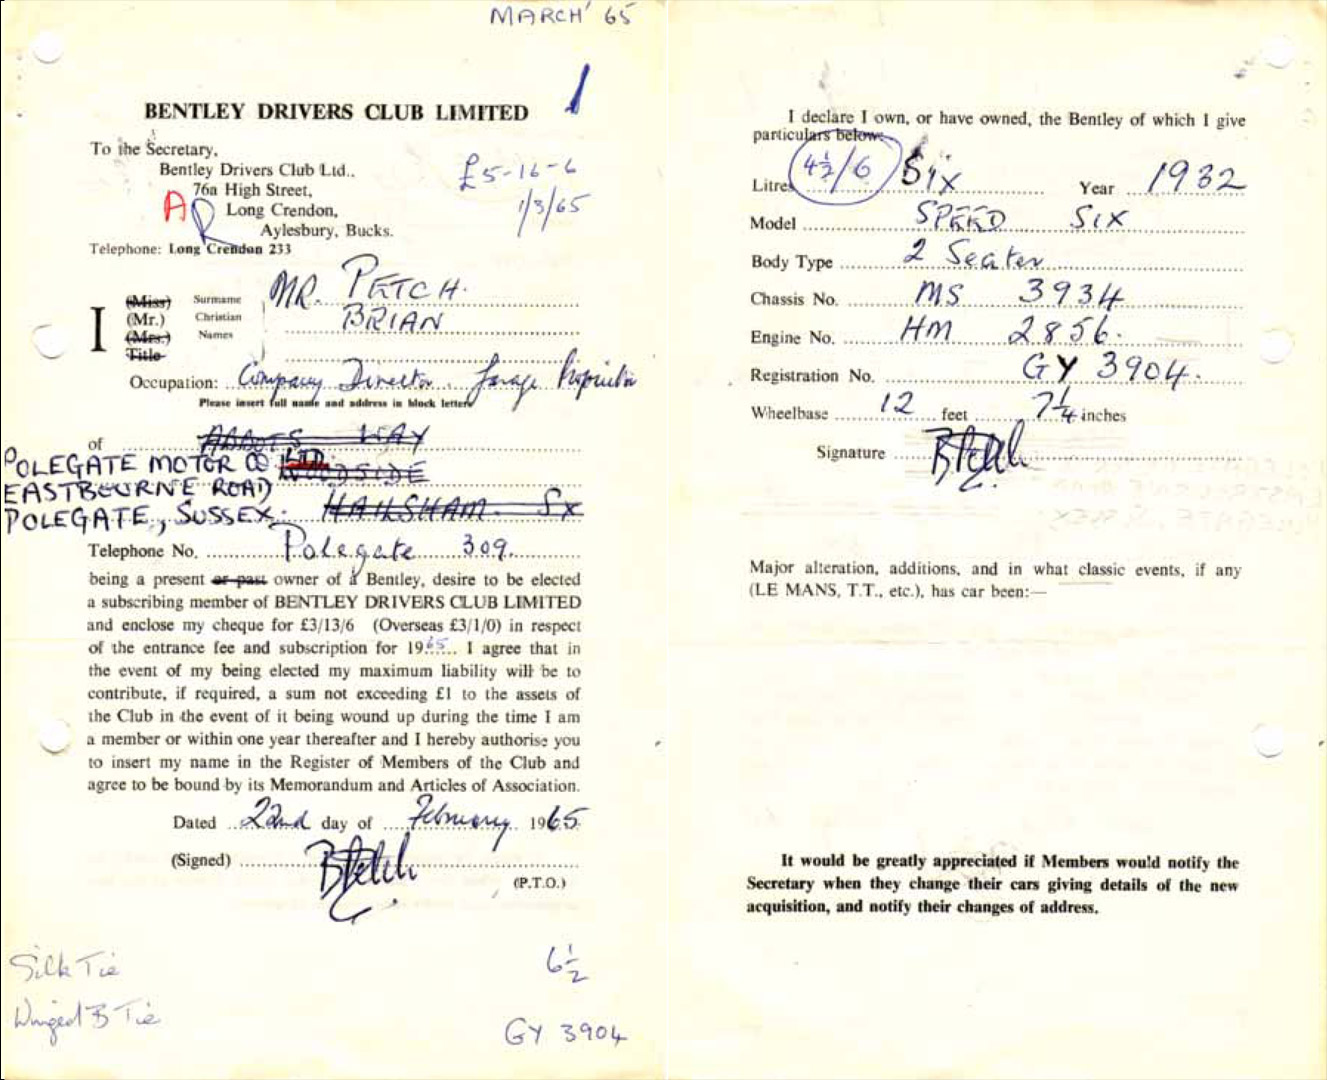 MARCH' 65
1
BENTLEY DRIVERS CLUB LIMITED
To the Secretary,
Bentley Drivers Club Ltd.,
76a High Street,
Long Crendon,
Aylesbury, Bucks.
Telephone: Long Crendon 233
£5-16-6
1/3/65
A
I
(Miss)
(Mr.)
(Mrs.)
Title
Surname
Christian
Names
MR. PETCH.
BRIAN
Occupation: Company Director. Garage Proprietor
Please insert full name and address in block letters
of ABBOTS WAY
WOODSIDE
HAILSHAM. Sx
POLEGATE MOTOR CO LTD
EASTBOURNE ROAD
POLEGATE, SUSSEX.
Telephone No. Polegate 309.
being a present or past owner of a Bentley, desire to be elected
a subscribing member of BENTLEY DRIVERS CLUB LIMITED
and enclose my cheque for £3/13/6 (Overseas £3/1/0) in respect
of the entrance fee and subscription for 1965. I agree that in
the event of my being elected my maximum liability will be to
contribute, if required, a sum not exceeding £1 to the assets of
the Club in the event of it being wound up during the time I am
a member or within one year thereafter and I hereby authorise you
to insert my name in the Register of Members of the Club and
agree to be bound by its Memorandum and Articles of Association.
Dated 22nd day of February 1965.
(Signed) B Petch
(P.T.O.)
Silk Tie
Winged B Tie
6½
GY 3904
I declare I own, or have owned, the Bentley of which I give
particulars below:
Litres 4½/6 Six Year 1932
Model SPEED SIX
Body Type 2 Seater
Chassis No. MS 3934
Engine No. HM 2856.
Registration No. GY 3904.
Wheelbase 12 feet 7¼ inches
Signature B Petch
Major alteration, additions, and in what classic events, if any
(LE MANS, T.T., etc.), has car been:—
It would be greatly appreciated if Members would notify the
Secretary when they change their cars giving details of the new
acquisition, and notify their changes of address.